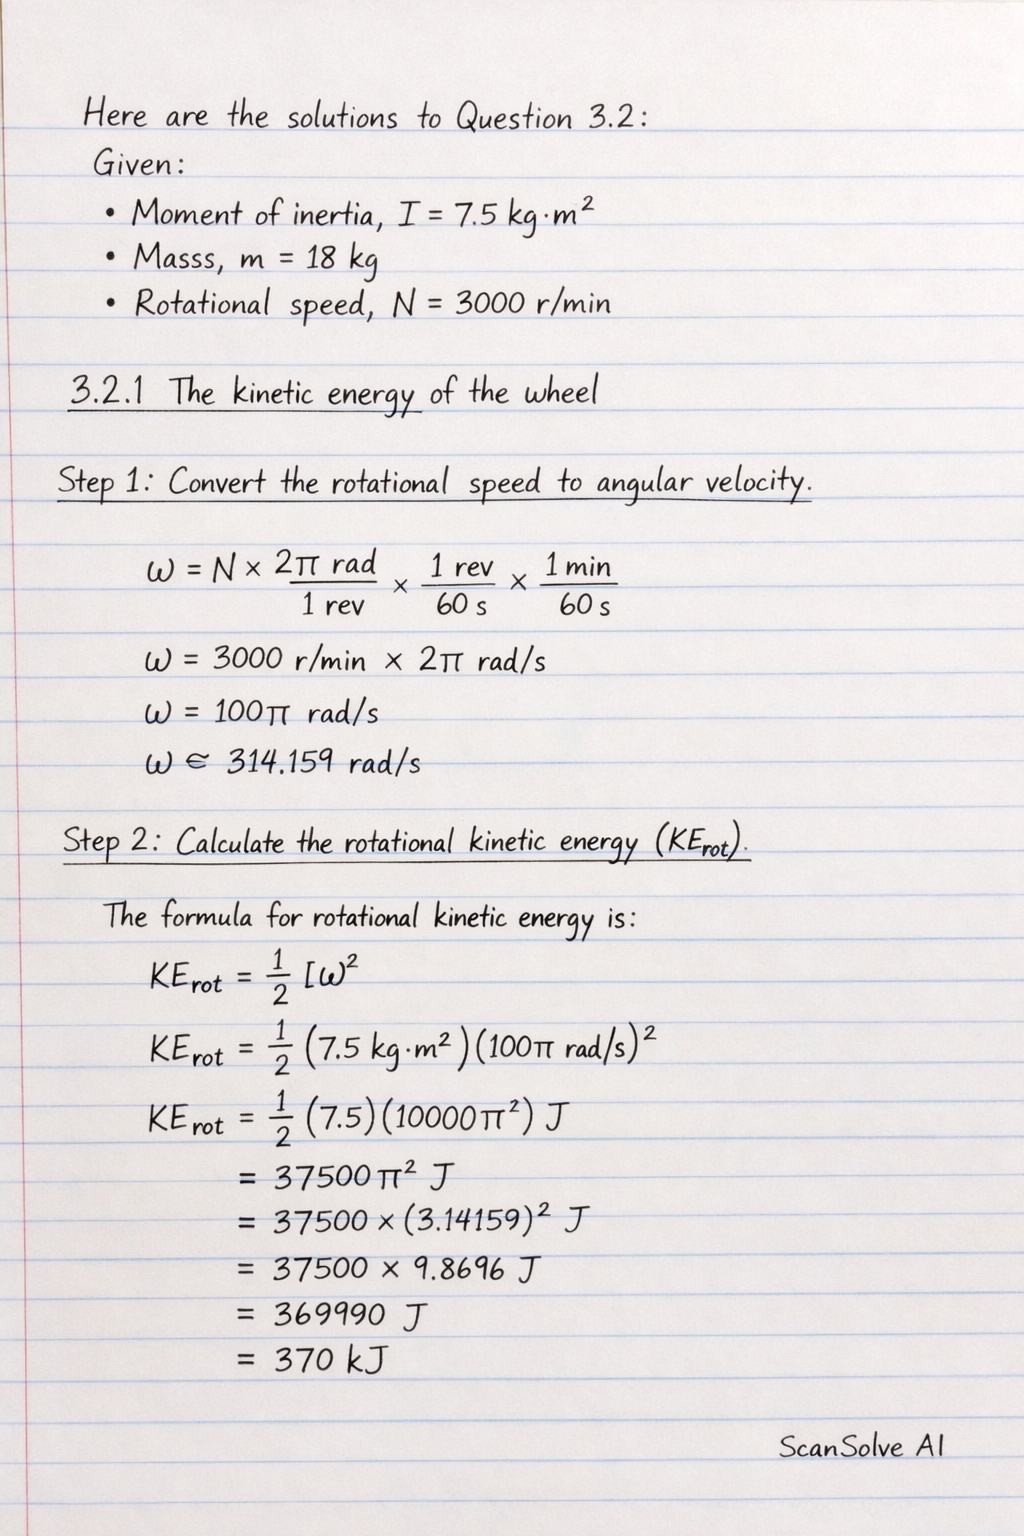 Here are the solutions to Question 3.2:
Given:
• Moment of inertia, I = 7.5 kg·m²
• Masss, m = 18 kg
• Rotational speed, N = 3000 r/min
3.2.1 The kinetic energy of the wheel
Step 1: Convert the rotational speed to angular velocity.
ω = N × 2π rad / 1 rev × 1 rev / 60 s × 1 min / 60 s
ω = 3000 r/min × 2π rad/s
ω = 100π rad/s
ω ∈ 314.159 rad/s
Step 2: Calculate the rotational kinetic energy (KErot).
The formula for rotational kinetic energy is:
KErot = 1/2 [ω²
KErot = 1/2 (7.5 kg·m²)(100π rad/s)²
KErot = 1/2 (7.5)(10000π²) J
= 37500π² J
= 37500 × (3.14159)² J
= 37500 × 9.8696 J
= 369990 J
= 370 kJ
ScanSolve AI